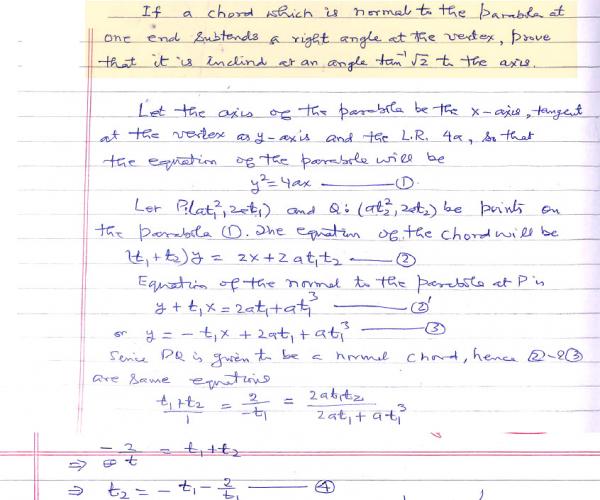 If a chord which is normal to the parabola at
one end subtends a right angle at the vertex, prove
that it is inclind at an angle tan⁻¹ √2 to the axis.
Let the axis of the parabola be the x-axis, tangent
at the vertex as y-axis and the L.R. 4a, so that
the equation of the parabola will be
y² = 4ax — ①
Let P:(at₁², 2at₁) and Q:(at₂², 2at₂) be points on
the parabola ①. The equation of the chord will be
(t₁+t₂)y = 2x + 2at₁t₂ — ②
Equation of the normal to the parabola at P is
y + t₁x = 2at₁ + at₁³ — ②'
or y = -t₁x + 2at₁ + at₁³ — ③
Since PQ is given to be a normal chord, hence ② & ③
are same equations
(t₁+t₂)/1 = 2/(-t₁) = 2at₁t₂/(2at₁ + at₁³)
⇒ -2/t = t₁+t₂
⇒ t₂ = -t₁ - 2/t₁ — ④